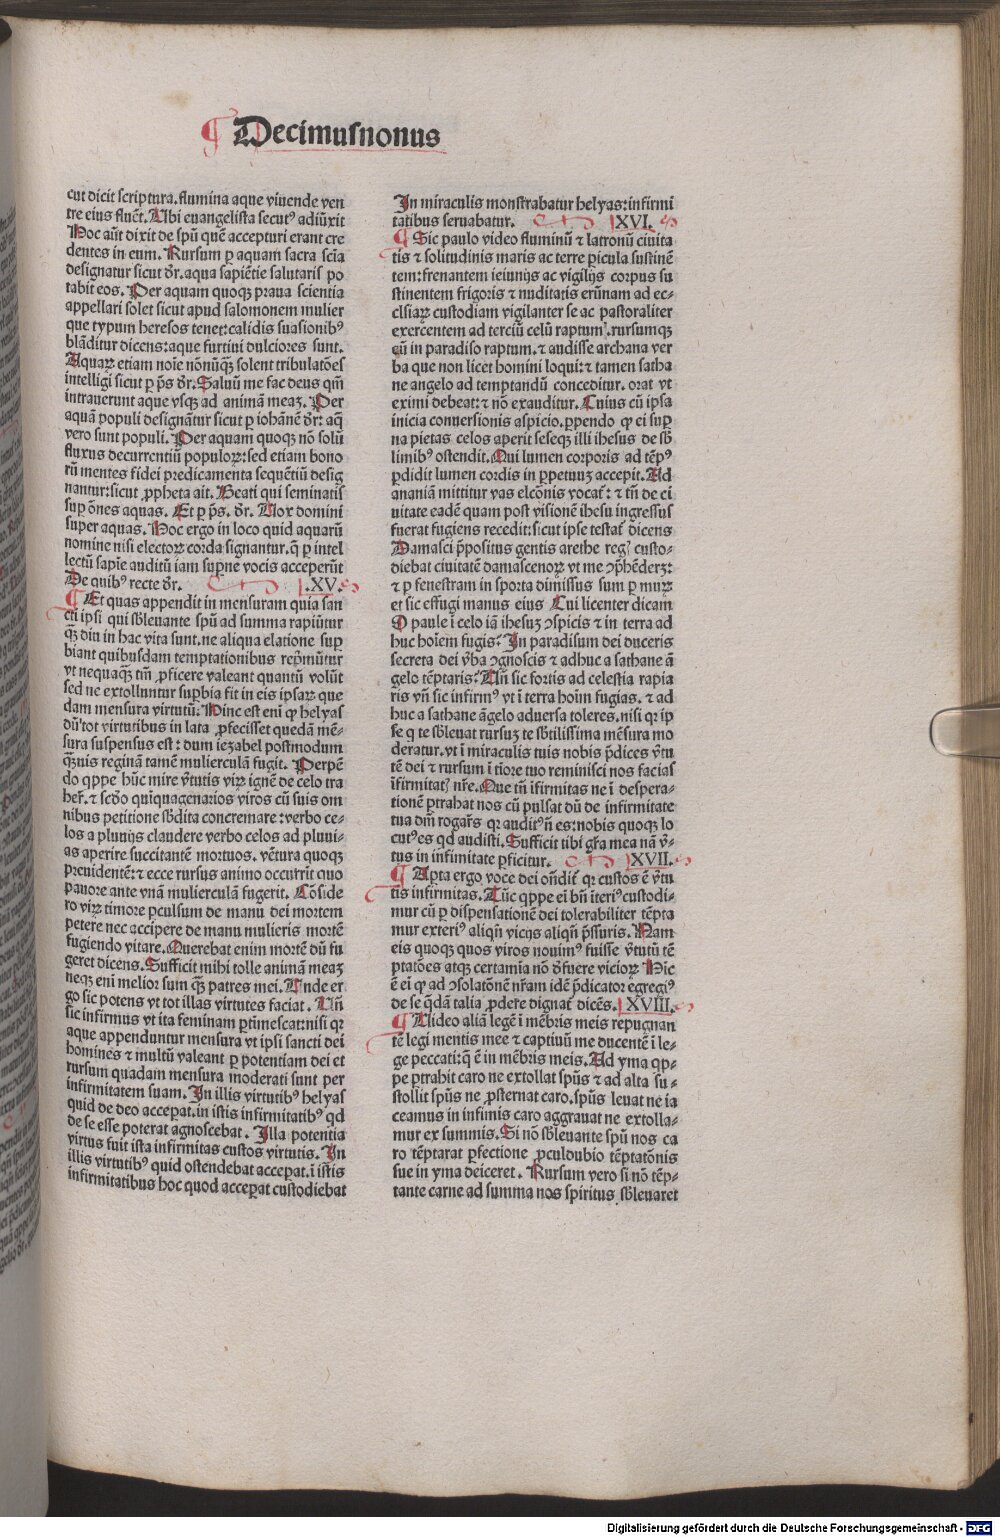 Decimusnonus
cut dicit scriptura. flumina aque viuende ven
tre eius fluēt. Ubi euangelista secutꝰ adiūxit
Hoc aūt dixit de spū quē accepturi erant cre
dentes in eum. Rursum ꝑ aquam sacra scīa
designatur sicut dr̄. aqua sapiētie salutaris po
tabit eos. Per aquam quoqꝫ praua scientia
appellari solet sicut apud salomonem mulier
que typum hereseos tenet: calidis suasionibꝰ
blāditur dicens: aque furtiui dulciores sunt.
Aquaꝝ etiam noīe nōnūqꝫ solent tribulatōes
intelligi sicut ꝑ p̄s dr̄. Saluū me fac deus qm̄
intrauerunt aque vsqꝫ ad animā meaꝫ. Per
aquā populi designātur sicut ꝑ iohānē dr̄: aq̄
vero sunt populi. Per aquam quoqꝫ nō solū
fluxus decurrentiū populoꝝ: sed etiam bono
rū mentes fidei predicamenta sequētiū desig
nantur: sicut ꝓpheta ait. Beati qui seminatis
suꝑ ōnes aquas. Et ꝑ p̄s. dr̄. Uox domini
super aquas. Hoc ergo in loco quid aquarū
nomine nisi electoꝝ corda signantur. q̄ ꝑ intel
lectū sapīe auditū iam suꝑne vocis acceperūt
De quibꝰ recte dr̄. .XV.
Et quas appendit in mensuram quia san
cti ipsi qui sb̄leuante spū ad summa rapiūtur
qꝫ diu in hac vita sunt. ne aliqua elatione suꝑ
biant quibusdam temptationibus rep̄mūtur
vt nequaqꝫ tm̄ ꝓficere valeant quantū volūt
sed ne extolluntur suꝑbia fit in eis ipsaꝝ que
dam mensura virtutū. Hinc est enī ꝙ helyas
dū tot virtutibus in lata ꝓfecisset quedā mē-
sura suspensus est: dum iezabel postmodum
qꝫuis reginā tamē mulierculā fugit. Perpē
do qppe hūc mire v̄tutis virꝝ ignē de celo tra
her̄. ⁊ scd̄o quīquagenarios viros cū suis om
nibus petitione sb̄dita concremare: verbo ce-
los a pluuijs claudere verbo celos ad pluui-
as aperire succitantē mortuos. vētura quoqꝫ
preuidentē: ⁊ ecce rursus animo occurrit quo
pauore ante vnā mulierculā fugerit. Cōside
ro virꝝ timore ꝑculsum de manu dei mortem
petere nec accipere de manu mulieris mortē
fugiendo vitare. Querebat enim mortē dū fu
geret dicens. Sufficit mihi tolle animā meaꝫ
neqꝫ enī melior sum qꝫ patres mei. Unde er
go sic potens vt tot illas virtutes faciat. Uñ
sic infirmus vt ita feminam ꝑtimescat: nisi qꝛ
aque appenduntur mensura vt ipsi sancti dei
homines ⁊ multū valeant ꝑ potentiam dei et
rursum quadam mensura moderati sunt per
infirmitatem suam. In illis virtutibꝰ helyas
quid de deo acceꝑat. in istis infirmitatibꝰ qd
de se esse poterat agnoscebat. Illa potentia
virtus fuit ista infirmitas custos virtutis. In
illis virtutibꝰ quid ostendebat acceꝑat. ī istis
infirmitatibus hoc quod acceꝑat custodiebat
In miraculis monstrabatur helyas: infirmi
tatibus seruabatur. XVI.
Sic paulo video fluminū ⁊ latronū ciuita
tis ⁊ solitudinis maris ac terre ꝑicula sustinē
tem: frenantem ieiunijs ac vigilijs corpus su
stinentem frigoris ⁊ nuditatis erūnam ad ec-
clesiaꝝ custodiam vigilanter se ac pastoraliter
exercentem ad terciū celū raptum. rursumqꝫ
eū in paradiso raptum. ⁊ audisse archana ver
ba que non licet homini loqui: ⁊ tamen satha
ne angelo ad temptandū conceditur. orat vt
eximi debeat: ⁊ nō exauditur. Cuius cū ipsa
inicia conuersionis aspicio. ꝑpendo ꝙ ei suꝑ
na pietas celos aperit seseqꝫ illi ihesus de sb̄
limibꝰ ostendit. Qui lumen corporis ad tēpꝰ
ꝑdidit lumen cordis in ꝑpetuuꝫ accepit. Ad
ananiā mittitur vas elcōnis vocat̄: ⁊ tn̄ de ci
uitate eadē quam post visionē ihesu ingressus
fuerat fugiens recedit: sicut ipse testat̄ dicens
Damasci p̄positus gentis arethe reg̅ custo-
diebat ciuitatē damascenoꝝ vt me ↄp̄hēderꝫ:
⁊ ꝑ fenestram in sporta dimissus sum ꝑ muꝝ
et sic effugi manus eius Cui licenter dicam
O paule ī celo iā ihesuꝫ ↄspicis ⁊ in terra ad
huc hoīem fugis? In paradisum dei duceris
secreta dei v̄ba ↄgnoscis ⁊ adhuc a sathane ā
gelo tēptaris? Uñ sic fortis ad celestia rapia
ris vn̄ sic infirmꝰ vt ī terra hoīm fugias. ⁊ ad
huc a sathane āgelo aduersa toleres. nisi qꝛ ip
se q te sb̄leuat rursuꝫ te sb̄tilissima mēsura mo
deratur. vt ī miraculis tuis nobis p̄dices v̄tu
tē dei ⁊ rursum ī tīore tuo reminisci nos facias
īfirmitatꝭ nr̄e. Que tn̄ īfirmitas ne ī despera-
tionē ꝑtrahat nos cū pulsat dū de infirmitate
tua dm̄ rogar̄s qꝛ auditꝰ n̄ es: nobis quoqꝫ lo
cutꝰ es qd audisti. Sufficit tibi gr̄a mea nā v̄-
tus in infimitate ꝑficitur. XVII.
Aꝑta ergo voce dei on̄dit̄ qꝛ custos ē v̄tu
tis infirmitas. Tūc qppe ei bn̄ īteriꝰ custodi-
mur cū ꝑ dispensationē dei tolerabiliter tēpta
mur exteriꝰ aliqn̄ vicijs aliqn̄ p̄ssuris. Nam
eis quoqꝫ quos viros nouimꝰ fuisse v̄tutū tē
ptatōes atqꝫ certamīa nō d̄fuere vicioꝝ Hic
ē ei ꝙ ad ↄsolatōnē nr̄am idē p̄dicator egregiꝰ
de se q̄dā talia ꝓdere dignat̄ dicēs. XVIII.
Uideo aliā legē ī mēbris meis repugnan
tē legi mentis mee ⁊ captiuū me ducentē ī le-
ge peccati: q̄ ē in mēbris meis. Ad yma qp-
pe ꝑtrahit caro ne extollat spūs ⁊ ad alta su-
stollit spūs ne ꝓsternat caro. spūs leuat ne ia
ceamus in infimis caro aggrauat ne extolla-
mur ex summis. Si nō sb̄leuante spū nos ca
ro tēptarat ꝑfectione ꝓculdubio tēptatōnis
sue in yma deiceret. Rursum vero si nō tēp-
tante carne ad summa nos spiritus sb̄leuaret
Digitalisierung gefördert durch die Deutsche Forschungsgemeinschaft - DFG